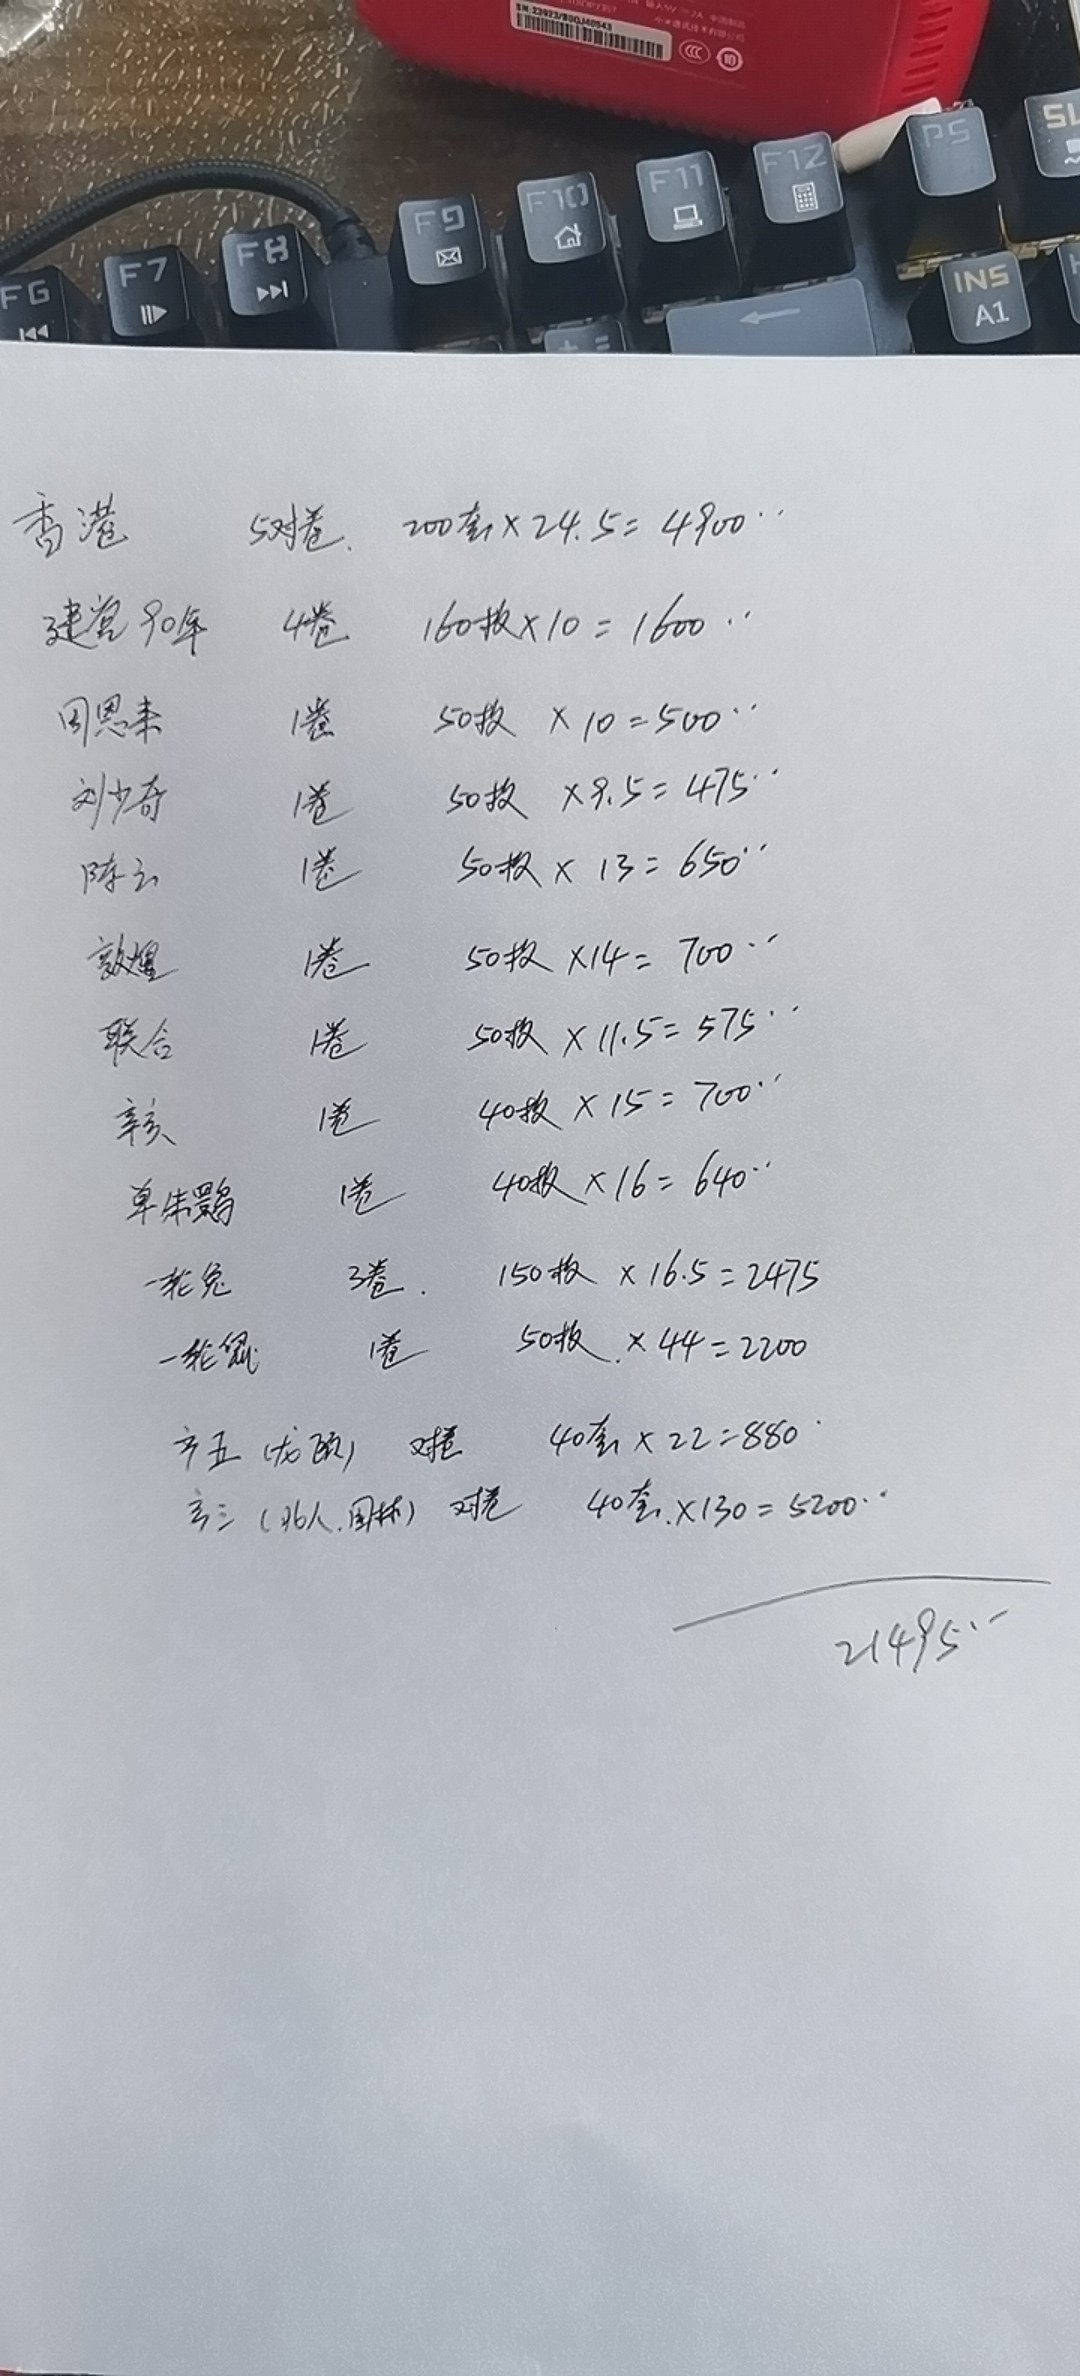 SN:23922/B0QJ40943
中国制造
10
F6
F7
F8
F9
F10
F11
F12
PS
INS
A1
香港 5对卷. 200套×24.5=4900
建党90年 4卷 160枚×10=1600
周恩来 1卷 50枚 ×10=500
刘少奇 1卷 50枚 ×9.5=475
陈云 1卷 50枚×13=650
敦煌 1卷 50枚×14=700
联合 1卷 50枚×11.5=575
辛亥 1卷 40枚×15=700
单朱鹮 1卷 40枚×16=640
一轮兔 3卷. 150枚×16.5=2475
一轮鼠 1卷 50枚.×44=2200
方五(龙颐) 对卷 40套×22=880
方三(北人.园林) 对卷 40套.×130=5200
21495